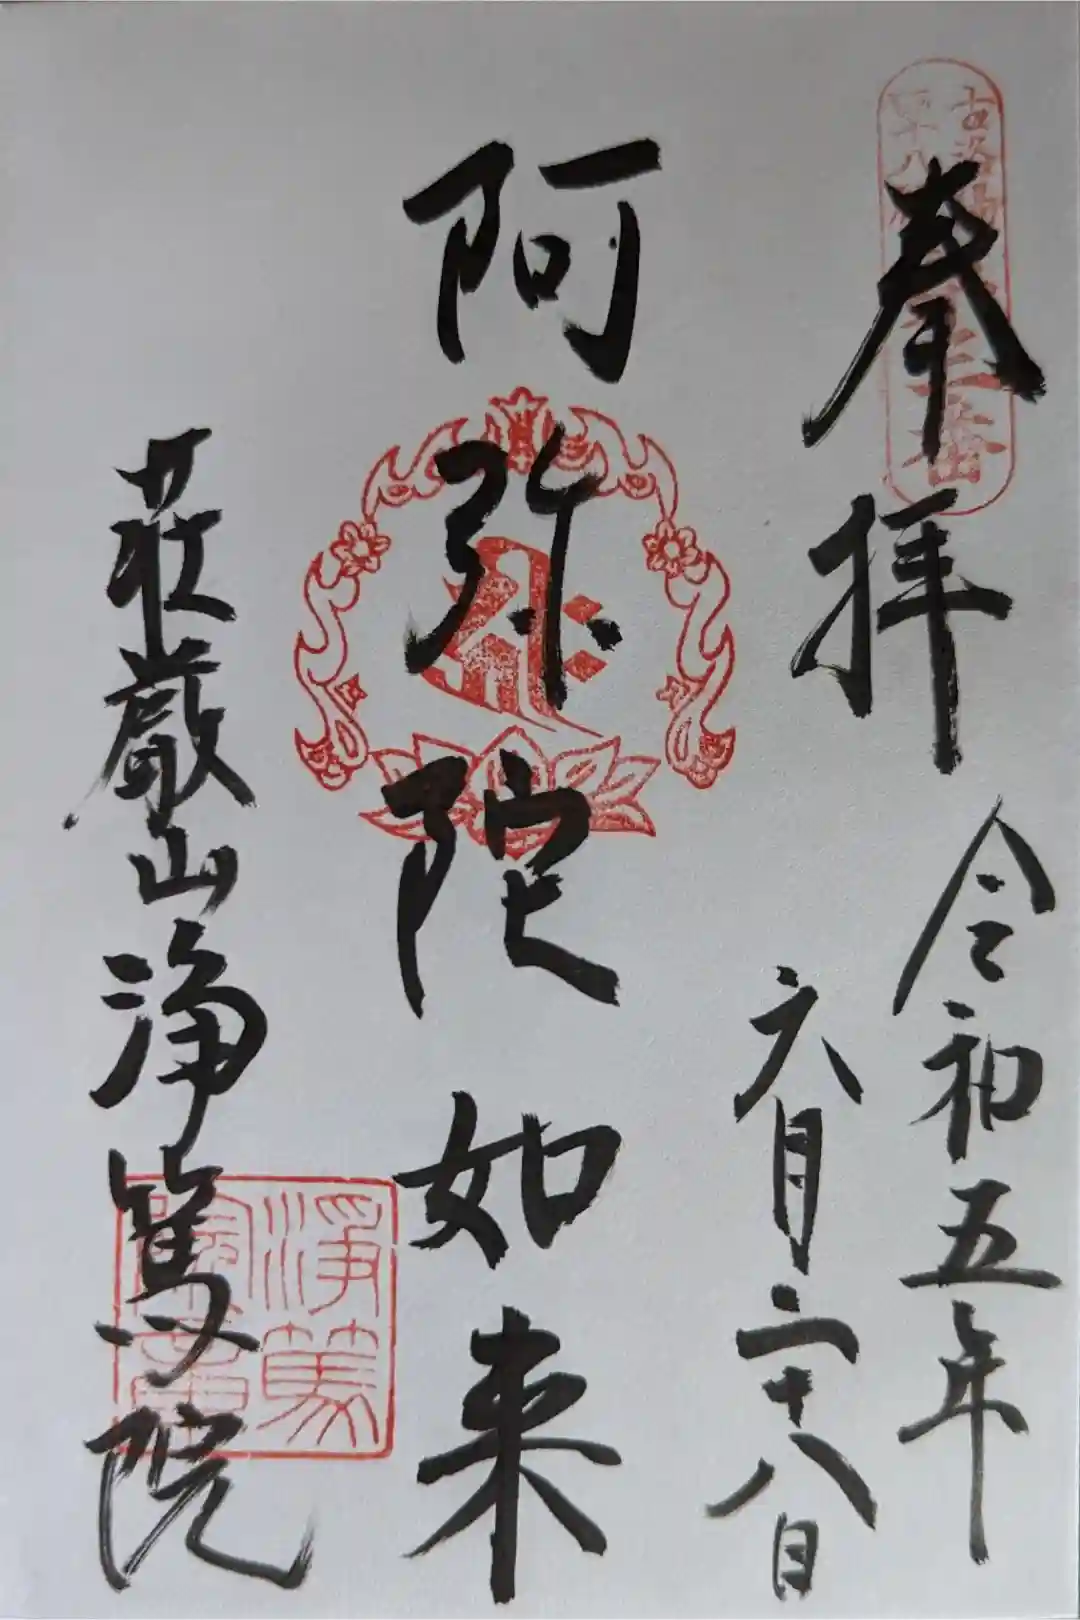 奉拝
令和五年
六月二十八日
阿弥陀如来
荘厳山浄篤院
浄篤